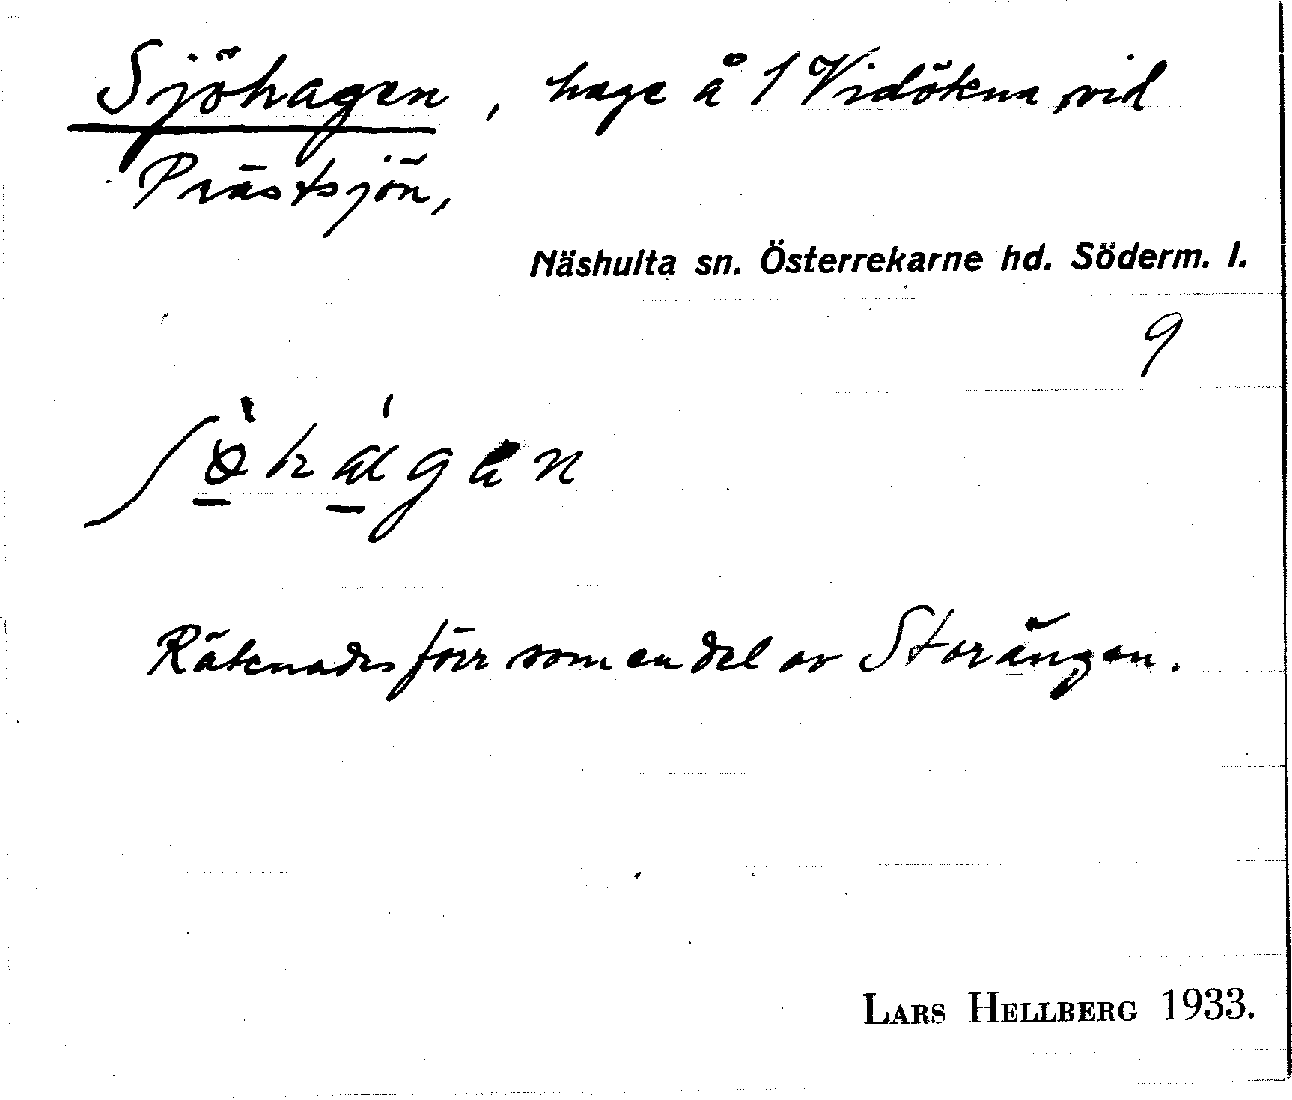 Sjöhagen, hage å 1 Vidökna, vid
Prästsjön,
Näshulta sn. Österrekarne hd. Söderm. l.
9
Räknades förr som en del av Storängen.
LARS HELLBERG 1933.